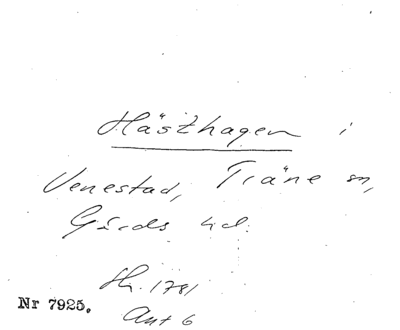 Hästhagen i
Venestad, Träne sn,
Gärds hd.
Sk. 1781
Ant 6
Nr 7925.